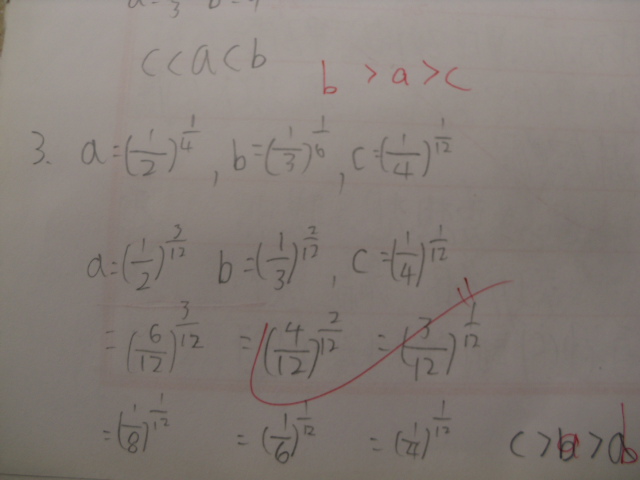 c<a<b
b > a > c
3. a=(1/2)^(1/4), b=(1/3)^(1/6), c=(1/4)^(1/12)
a=(1/2)^(3/12) b=(1/3)^(2/12), c=(1/4)^(1/12)
=(6/12)^(3/12) =(4/12)^(2/12) =(3/12)^(1/12)
=(1/8)^(1/12) =(1/6)^(1/12) =(1/4)^(1/12) c>a>b